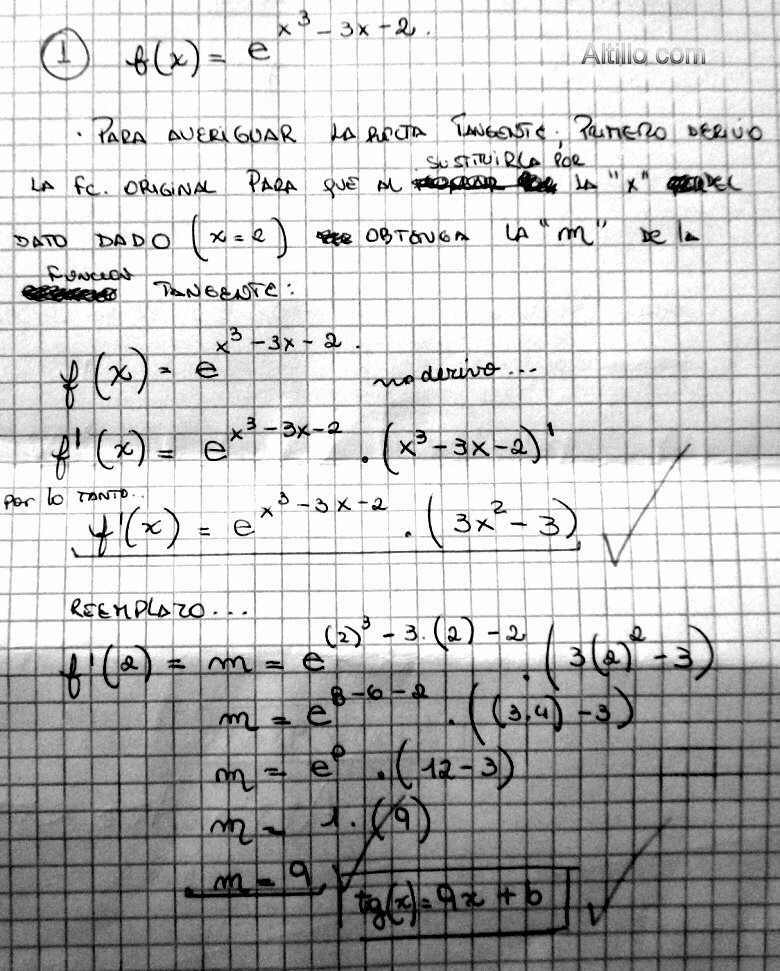 ① f(x) = e^(x³ - 3x - 2).
Altillo.com
· PARA AVERIGUAR LA RECTA TANGENTE, PRIMERO DERIVO
SUSTITUIRLA POR
LA FC. ORIGINAL PARA QUE AL LA "X" DEL
DATO DADO (x = 2) OBTENGA LA "m" DE la
FUNCION
TANGENTE:
f(x) = e^(x³ - 3x - 2).
derivo...
f'(x) = e^(x³ - 3x - 2) . (x³ - 3x - 2)'
Por lo TANTO..
f'(x) = e^(x³ - 3x - 2) . (3x² - 3)
REEMPLAZO...
f'(2) = m = e^((2)³ - 3.(2) - 2) . (3(2)² - 3)
m = e^(8 - 6 - 2) . ((3.4) - 3)
m = e⁰ . (12 - 3)
m = 1 . (9)
m = 9
tg(x) = 9x + b